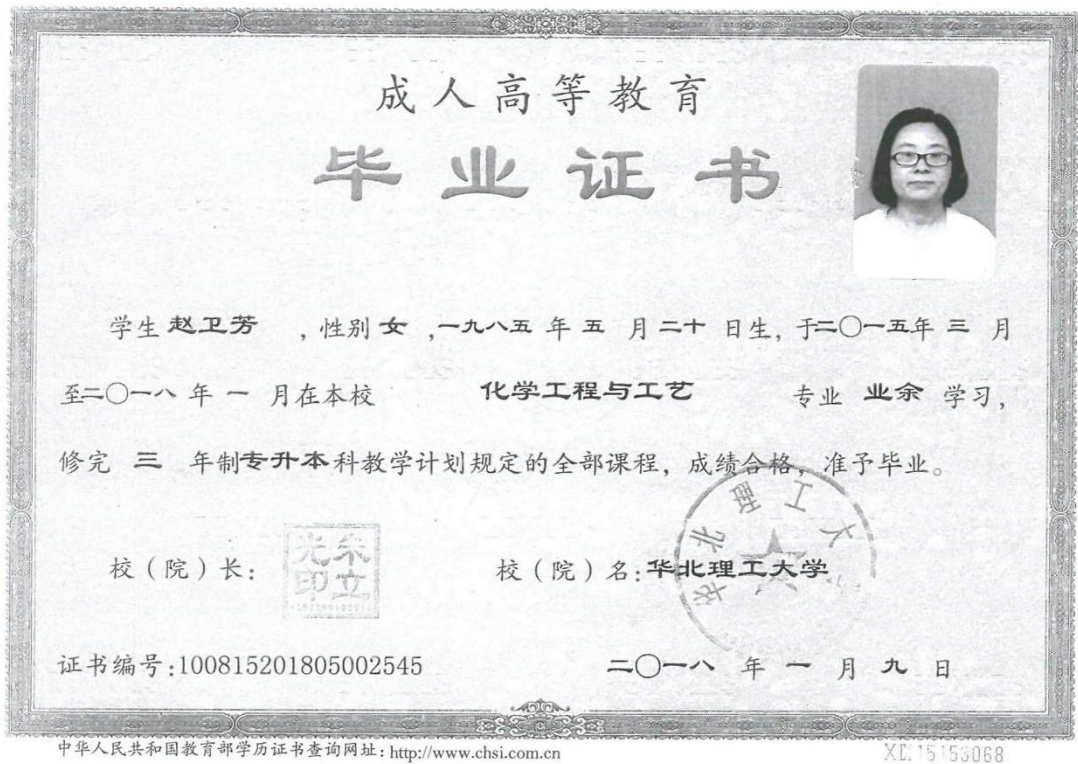 成人高等教育
毕业证书
学生 赵卫芳 ，性别 女 ，一九八五 年 五 月 二十 日生，于二〇一五年 三 月
至二〇一八 年 一 月在本校 化学工程与工艺 专业 业余 学习，
修完 三 年制专升本科教学计划规定的全部课程，成绩合格，准予毕业。
华北理工大
校（院）长：
朱立光印
校（院）名：华北理工大学
证书编号：100815201805002545
二〇一八 年 一 月 九 日
中华人民共和国教育部学历证书查询网址：http://www.chsi.com.cn
15153068